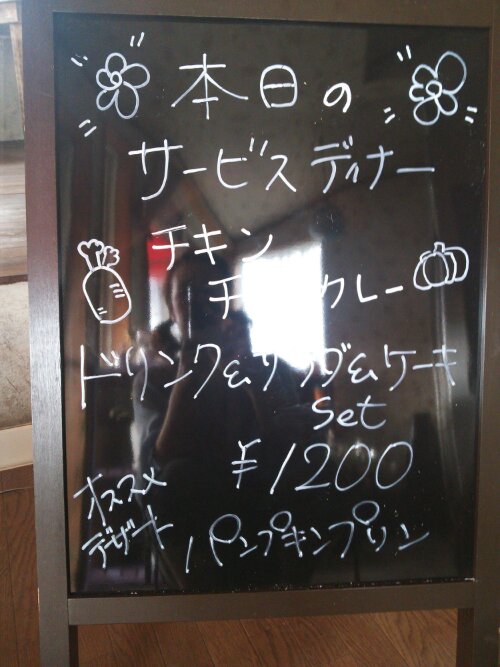 本日の
サービスディナー
チキン
カレー
ドリンク&サラダ&ケーキ
set
¥1200
オススメ
デザート
パンプキンプリン